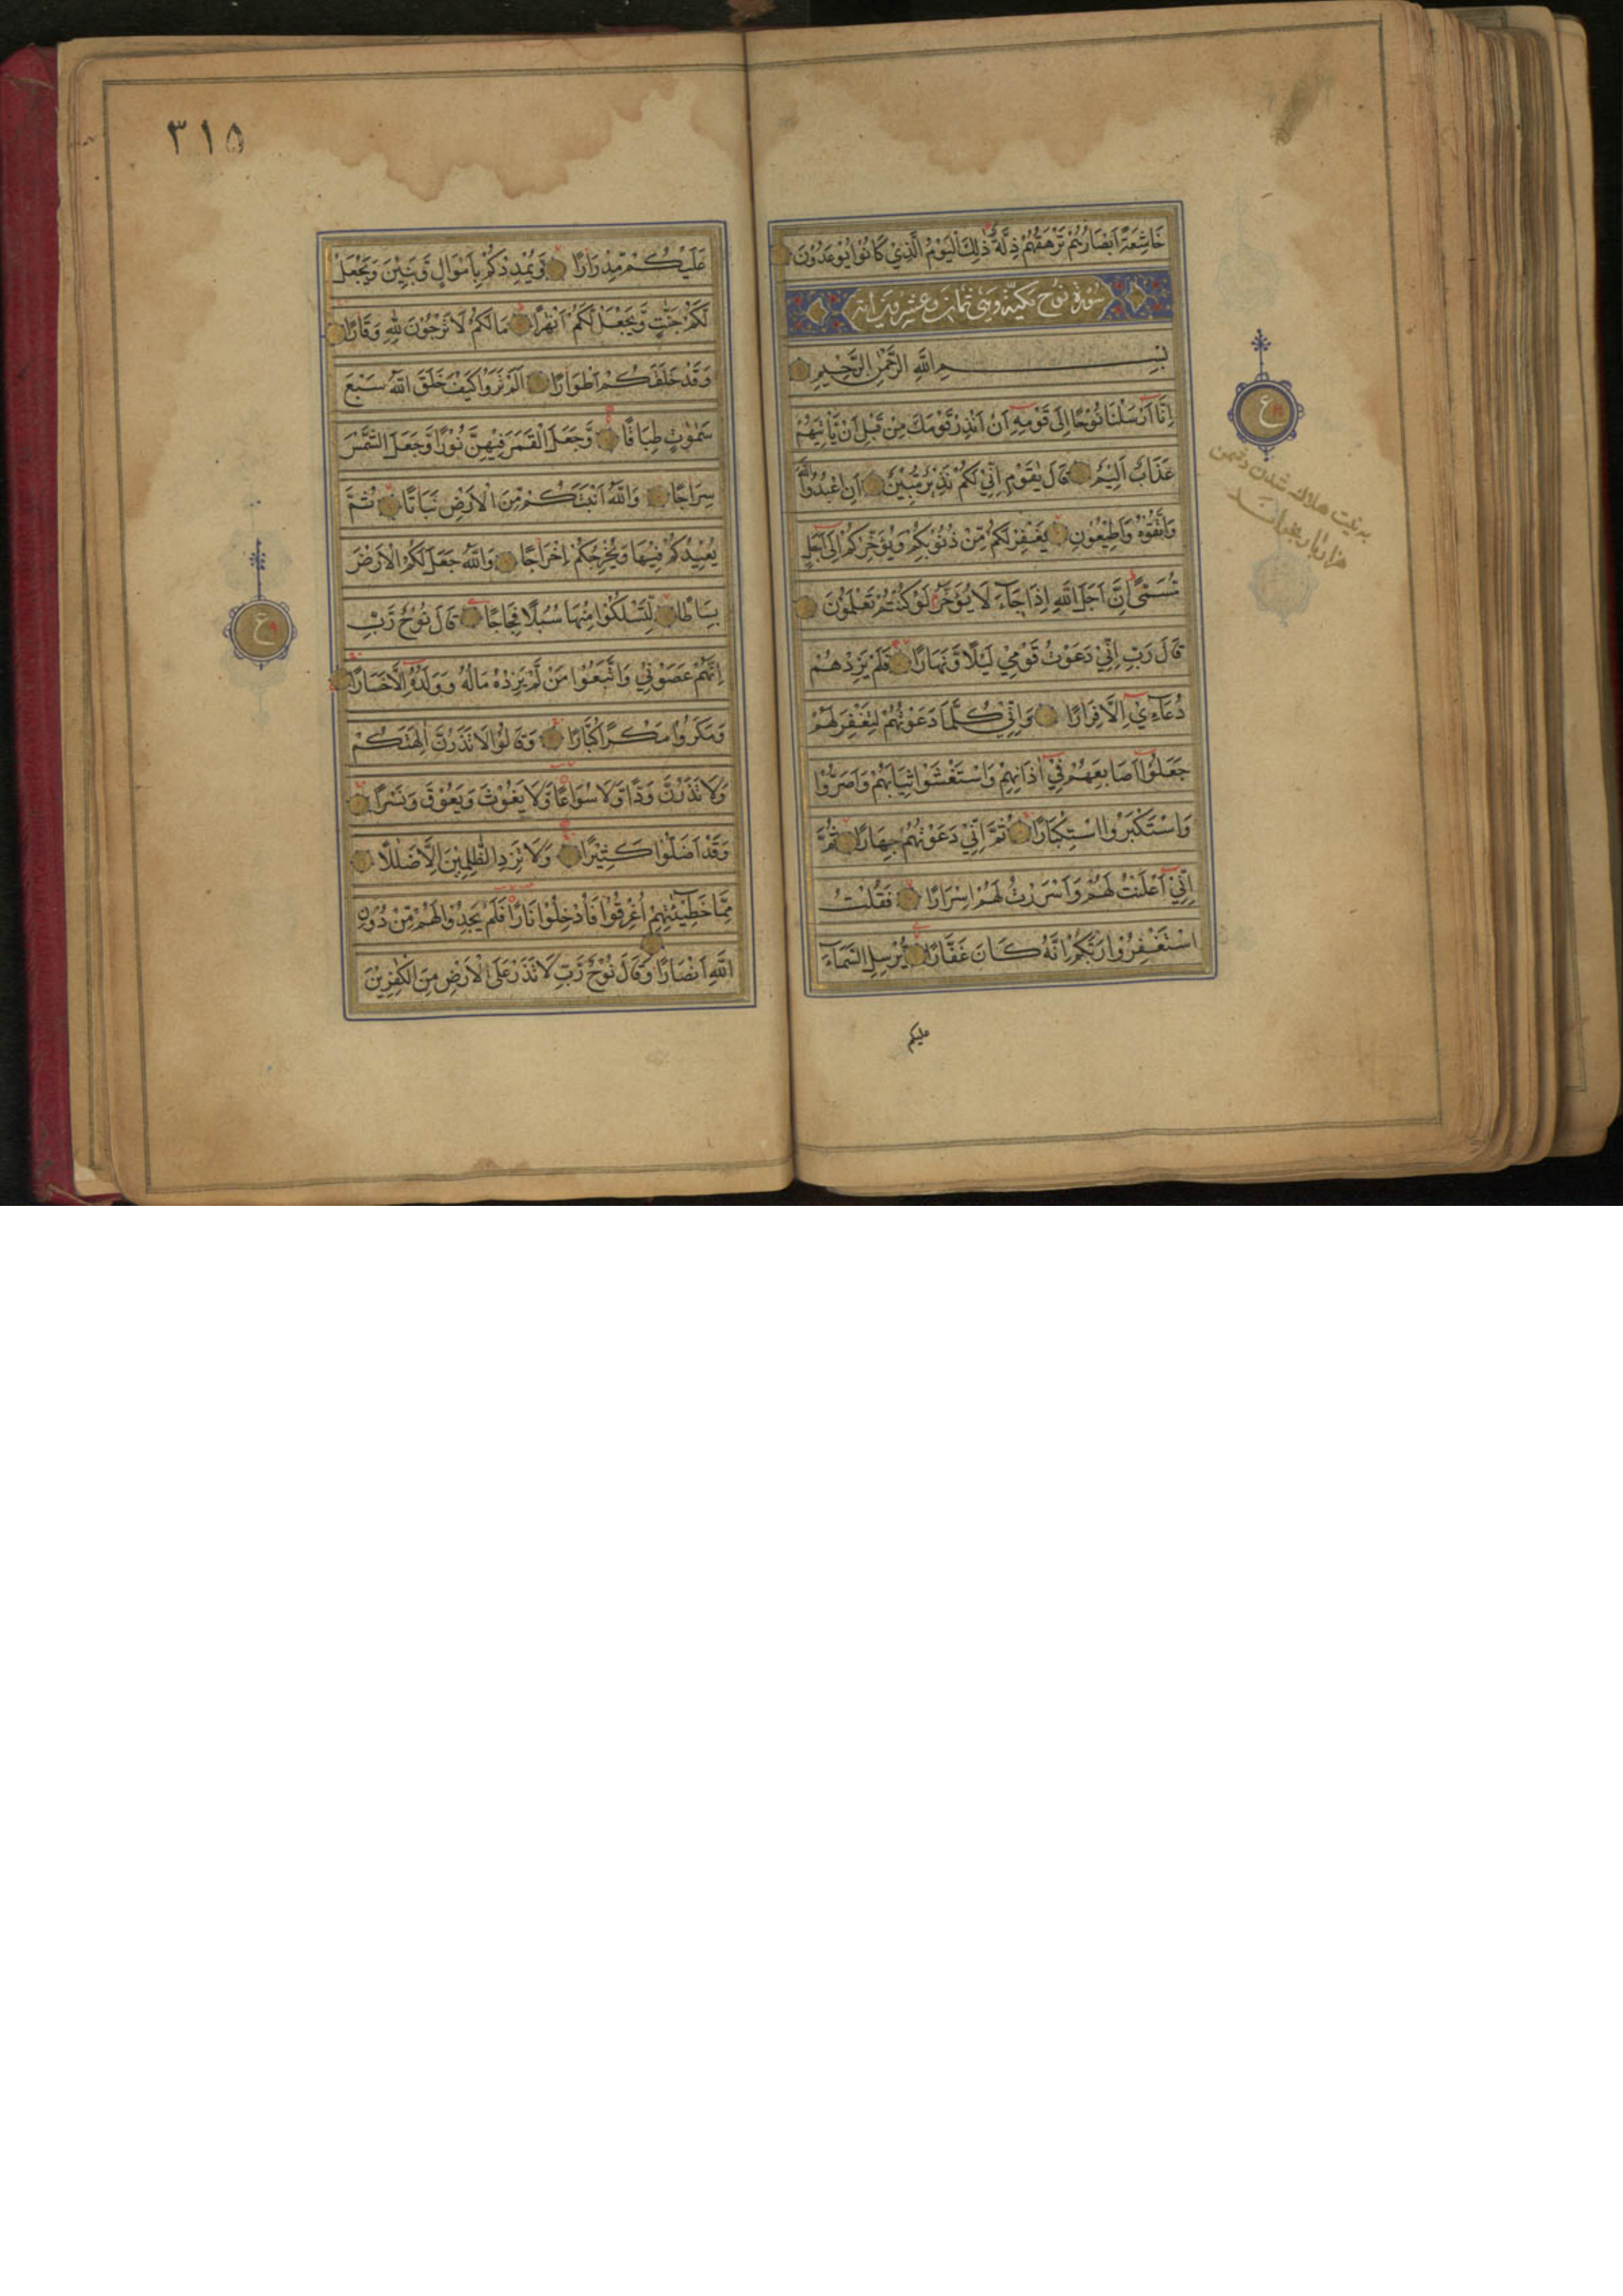 خَاشِعَةً اَبْصَارُهُمْ تَرْهَقُهُمْ ذِلَّةٌ ذٰلِكَ الْيَوْمُ الَّذِيْ كَانُوْا يُوْعَدُوْنَ
سورة نوح مكية وهى ثمان وعشرون اية
بِسْمِ اللّٰهِ الرَّحْمٰنِ الرَّحِيْمِ
اِنَّا اَرْسَلْنَا نُوْحًا اِلٰى قَوْمِهٖ اَنْ اَنْذِرْ قَوْمَكَ مِنْ قَبْلِ اَنْ يَّاْتِيَهُمْ
عَذَابٌ اَلِيْمٌ قَالَ يٰقَوْمِ اِنِّيْ لَكُمْ نَذِيْرٌ مُّبِيْنٌ اَنِ اعْبُدُوا اللّٰهَ
وَاتَّقُوْهُ وَاَطِيْعُوْنِ يَغْفِرْ لَكُمْ مِّنْ ذُنُوْبِكُمْ وَيُؤَخِّرْكُمْ اِلٰى اَجَلٍ
مُّسَمًّى اِنَّ اَجَلَ اللّٰهِ اِذَا جَآءَ لَا يُؤَخَّرُ لَوْ كُنْتُمْ تَعْلَمُوْنَ
قَالَ رَبِّ اِنِّيْ دَعَوْتُ قَوْمِيْ لَيْلًا وَّنَهَارًا فَلَمْ يَزِدْهُمْ
دُعَآءِيْ اِلَّا فِرَارًا وَاِنِّيْ كُلَّمَا دَعَوْتُهُمْ لِتَغْفِرَ لَهُمْ
جَعَلُوْا اَصَابِعَهُمْ فِيْ اٰذَانِهِمْ وَاسْتَغْشَوْا ثِيَابَهُمْ وَاَصَرُّوْا
وَاسْتَكْبَرُوا اسْتِكْبَارًا ثُمَّ اِنِّيْ دَعَوْتُهُمْ جِهَارًا ثُمَّ
اِنِّيْ اَعْلَنْتُ لَهُمْ وَاَسْرَرْتُ لَهُمْ اِسْرَارًا فَقُلْتُ
اسْتَغْفِرُوْا رَبَّكُمْ اِنَّهٗ كَانَ غَفَّارًا يُرْسِلِ السَّمَآءَ
عليكم
ع
به نيت هلاك شدن دشمن
هزار بار بخواند
٣١٥
عَلَيْكُمْ مِّدْرَارًا وَّيُمْدِدْكُمْ بِاَمْوَالٍ وَّبَنِيْنَ وَيَجْعَلْ
لَّكُمْ جَنّٰتٍ وَّيَجْعَلْ لَّكُمْ اَنْهٰرًا مَا لَكُمْ لَا تَرْجُوْنَ لِلّٰهِ وَقَارًا
وَقَدْ خَلَقَكُمْ اَطْوَارًا اَلَمْ تَرَوْا كَيْفَ خَلَقَ اللّٰهُ سَبْعَ
سَمٰوٰتٍ طِبَاقًا وَّجَعَلَ الْقَمَرَ فِيْهِنَّ نُوْرًا وَّجَعَلَ الشَّمْسَ
سِرَاجًا وَاللّٰهُ اَنْبَتَكُمْ مِّنَ الْاَرْضِ نَبَاتًا ثُمَّ
يُعِيْدُكُمْ فِيْهَا وَيُخْرِجُكُمْ اِخْرَاجًا وَاللّٰهُ جَعَلَ لَكُمُ الْاَرْضَ
بِسَاطًا لِّتَسْلُكُوْا مِنْهَا سُبُلًا فِجَاجًا قَالَ نُوْحٌ رَّبِّ
اِنَّهُمْ عَصَوْنِيْ وَاتَّبَعُوْا مَنْ لَّمْ يَزِدْهُ مَالُهٗ وَوَلَدُهٗ اِلَّا خَسَارًا
وَمَكَرُوْا مَكْرًا كُبَّارًا وَقَالُوْا لَا تَذَرُنَّ اٰلِهَتَكُمْ
وَلَا تَذَرُنَّ وَدًّا وَّلَا سُوَاعًا وَّلَا يَغُوْثَ وَيَعُوْقَ وَنَسْرًا
وَقَدْ اَضَلُّوْا كَثِيْرًا وَلَا تَزِدِ الظّٰلِمِيْنَ اِلَّا ضَلٰلًا
مِمَّا خَطِيْٓئٰتِهِمْ اُغْرِقُوْا فَاُدْخِلُوْا نَارًا فَلَمْ يَجِدُوْا لَهُمْ مِّنْ دُوْنِ
اللّٰهِ اَنْصَارًا وَقَالَ نُوْحٌ رَّبِّ لَا تَذَرْ عَلَى الْاَرْضِ مِنَ الْكٰفِرِيْنَ
ع